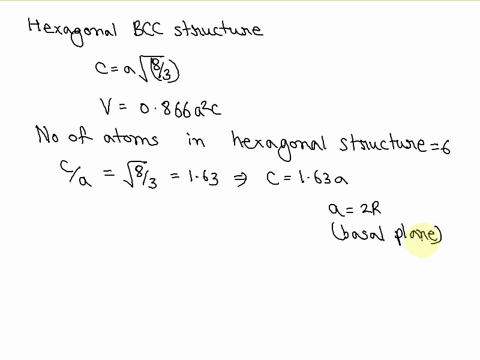 Hexagonal BCC structure
C = a√(8/3)
V = 0.866a²c
No of atoms in hexagonal structure = 6
C/a = √8/3 = 1.63 ⇒ C = 1.63a
a = 2R
(basal plane)